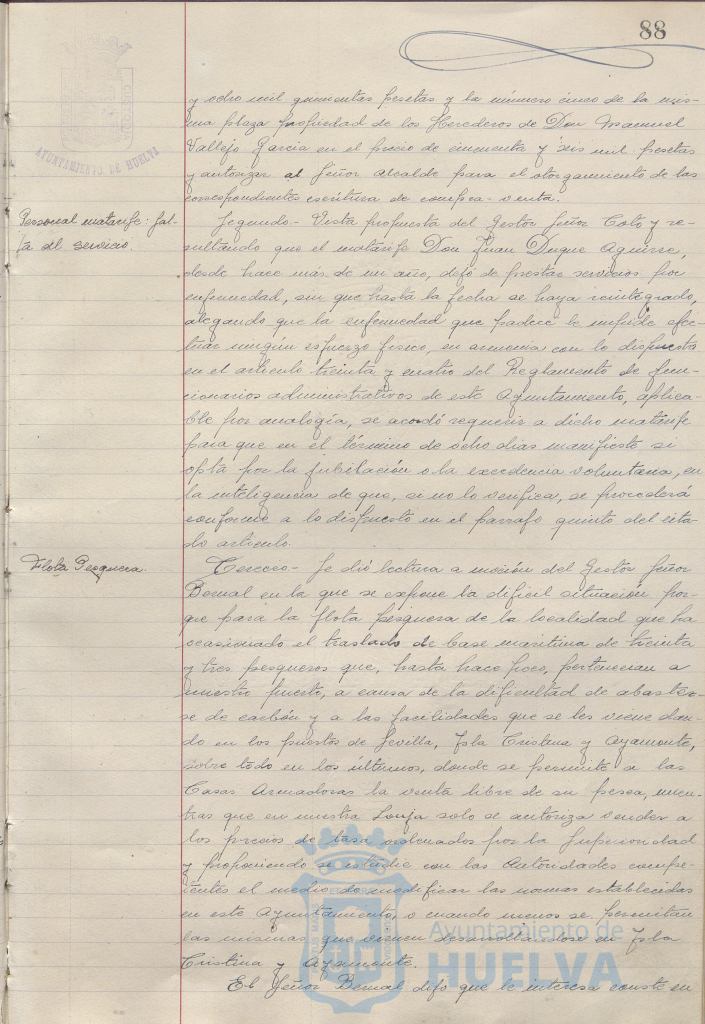 88
AYUNTAMIENTO DE HUELVA
y ocho mil quinientas pesetas y la número cinco de la mis-
ma plaza propiedad de los Herederos de Don Manuel
Vallejo Garcia en el precio de cincuenta y seis mil pesetas
y autorizar al Señor Alcalde para el otorgamiento de las
correspondientes escritura de compra-venta.
Personal matarife: fal-
ta al servicio.
Segundo- Vista propuesta del Gestor Señor Coto y re-
sultando que el matarife Don Juan Duque Aguirre,
desde hace más de un año, dejó de prestar servicios por
enfermedad, sin que hasta la fecha se haya reintegrado,
alegando que la enfermedad que padece le impide efec-
tuar ningún esfuerzo fisico, en armonia con lo dispuesto
en el articulo treinta y cuatro del Reglamento de fun-
cionarios administrativos de este Ayuntamiento, aplica-
ble por analogía, se acordó requerir a dicho matarife
para que en el término de ocho dias manifieste si
opta por la jubilación o la excedencia voluntaria, en
la inteligencia de que, si no lo verifica, se procederá
conforme a lo dispuesto en el párrafo quinto del cita-
do articulo.
Flota Pesquera.
Tercero- Se dió lectura a moción del Gestor Señor
Bernal en la que se expone la dificil situación por-
que para la flota pesquera de la localidad que ha
ocasionado el traslado de base maritima de treinta
y tres pesqueros que, hasta hace poco, pertenecian a
nuestro puerto, a causa de la dificultad de abastecer-
se de carbón y a las facilidades que se les viene dan-
do en los puertos de Sevilla, Isla Cristina y Ayamonte,
sobre todo en los últimos, donde se permite a las
Casas Armadoras la venta libre de su pesca, mien-
tras que en nuestra Lonja solo se autoriza vender a
los precios de tasa ordenados por la Superioridad
y proponiendo se estudie con las Autoridades compe-
tentes el medio de modificar las normas establecidas
en este Ayuntamiento, o cuando menos se permitan
las mismas que vienen desarrollandose en Isla
Cristina y Ayamonte.
El Señor Bernal dijo que le interesa conste en
Ayuntamiento de
HUELVA